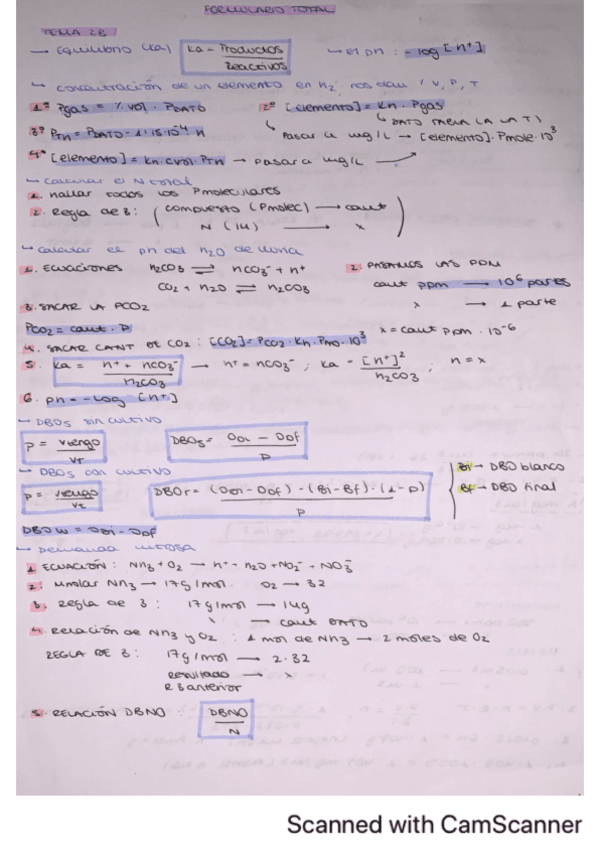 FORMULARIO TOTAL
TEMA 2B
→ Equilibrio (Ka) Ka = Productos / Reactivos → el pH : - log [H+]
→ Concentración de un elemento en H2 nos dan % V, P, T
1º Pgas = % vol · PDATO 2º [elemento] = KH · Pgas
↳ DATO TABLA (A LA T)
3º PTH = PDATO - 1'15·10⁻⁴ · H ↳ Pasar a mg/L → [elemento] · Pmolec · 10³
4º [elemento] = KH · CVOL · PTH → pasar a mg/L
→ Calcular el N total
1. Hallar todos los Pmoleculares
2. Regla de 3: ( compuesto (Pmolec) → cant
N (14) → x )
→ Calcular el pH del H2O de lluvia
1. Ecuaciones H2CO3 ⇌ HCO3⁻ + H+ 2. PASAMOS LAS PPM
CO2 + H2O ⇌ H2CO3 cant ppm → 10⁶ partes
3. SACAR LA PCO2 x → 1 parte
PCO2 = cant · P x = cant ppm · 10⁻⁶
4. SACAR CANT DE CO2 : [CO2] = PCO2 · KH · PMO · 10³
5. Ka = H+ + HCO3⁻ / H2CO3 → H+ = HCO3⁻ ; Ka = [H+]² / H2CO3 ; H = x
6. pH = - log [H+]
→ DBO5 sin cultivo
P = Vriego / VT DBO5 = ODi - ODf / P
→ DBO5 con cultivo
P = Vriego / VT DBOr = (ODi - ODf) - (Bi - Bf) · (1 - P) / P
Bi → DBO blanco
Bf → DBO final
DBOw = ODi - ODf
→ Demanda
1. ECUACIÓN : NH3 + O2 → H+ + H2O + NO2⁻ + NO3⁻
2. Mmolar NH3 → 17 g/mol O2 → 32
3. Regla de 3 : 17 g/mol → 14g
x → cant DATO
4. Relación de NH3 y O2 : 1 mol de NH3 → 2 moles de O2
REGLA DE 3 : 17 g/mol → 2·32
Resultado → x
R 3 anterior
5. RELACIÓN DBNO : DBNO / N
Scanned with CamScanner